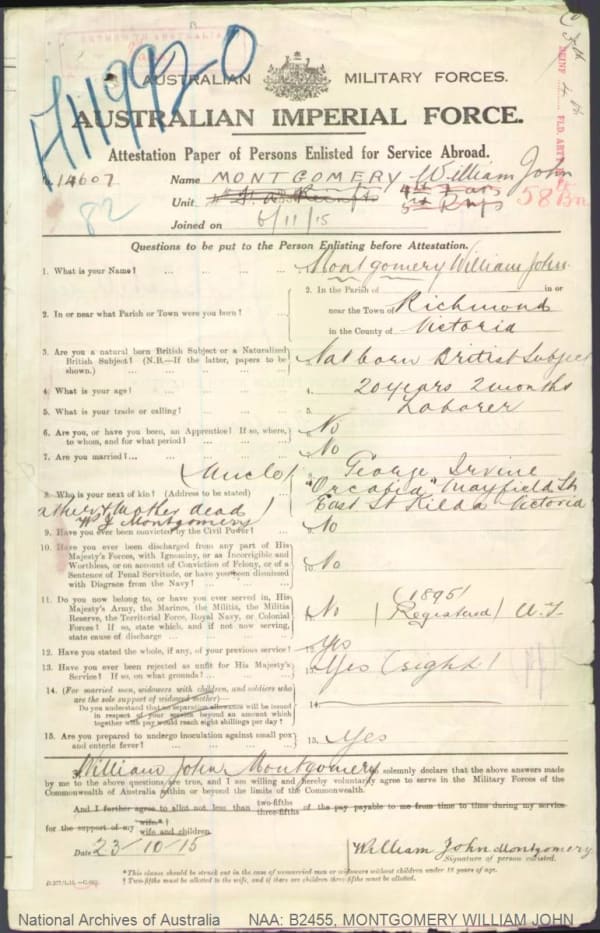 H11992-0
AUSTRALIAN MILITARY FORCES.
AUSTRALIAN IMPERIAL FORCE.
Attestation Paper of Persons Enlisted for Service Abroad.
14607 Name MONTGOMERY William John
82
Unit
58 Bn
Joined on 6/11/15
Questions to be put to the Person Enlisting before Attestation.
1. What is your Name? Montgomery William John
2. In or near what Parish or Town were you born? 2. In the Parish of in or
near the Town of Richmond
in the County of Victoria
3. Are you a natural born British Subject or a Naturalized British Subject? (N.B.—If the latter, papers to be shown.) Nat born British Subject
4. What is your age? 4. 20 years 2 months
5. What is your trade or calling? 5. Laborer
6. Are you, or have you been, an Apprentice? If so, where, to whom, and for what period? No
7. Are you married? No
(Uncle)
8. Who is your next of kin? (Address to be stated) George Irvine
"Orcadia" Mayfield St
East St Kilda Victoria
Father & Mother dead
W J Montgomery
9. Have you ever been convicted by the Civil Power? No
10. Have you ever been discharged from any part of His Majesty's Forces, with Ignominy, or as Incorrigible and Worthless, or on account of Conviction of Felony, or of a Sentence of Penal Servitude, or have you been dismissed with Disgrace from the Navy? No
11. Do you now belong to, or have you ever served in, His Majesty's Army, the Marines, the Militia, the Militia Reserve, the Territorial Force, Royal Navy, or Colonial Forces? If so, state which, and if not now serving, state cause of discharge No (1895 Registered) U.T.
12. Have you stated the whole, if any, of your previous service? Yes
13. Have you ever been rejected as unfit for His Majesty's Service? If so, on what grounds? Yes (sight)
14. (For married men, widowers with children, and soldiers who are the sole support of widowed mother)—
Do you understand that no separation allowance will be issued in respect of your service beyond an amount which together with pay would reach eight shillings per day? 14.
15. Are you prepared to undergo inoculation against small pox and enteric fever? 15. Yes
William John Montgomery solemnly declare that the above answers made
by me to the above questions are true, and I am willing and hereby voluntarily agree to serve in the Military Forces of the
Commonwealth of Australia within or beyond the limits of the Commonwealth.
And I further agree to allot not less than two-fifths three-fifths of the pay payable to me from time to time during my service
for the support of my wife* wife and children
Date 23/10/15 William John Montgomery
Signature of person enlisted.
*This clause should be struck out in the case of unmarried men or widowers without children under 18 years of age.
† Two-fifths must be allotted to the wife, and if there are children three-fifths must be allotted.
National Archives of Australia NAA: B2455, MONTGOMERY WILLIAM JOHN